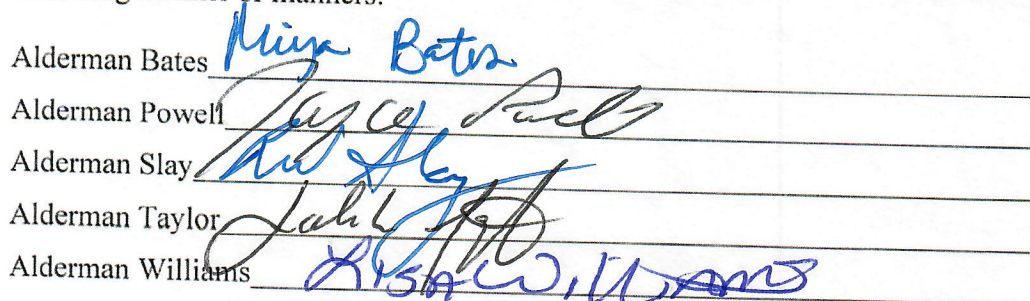 Alderman Bates Miya Bates
Alderman Powell Jayce Powell
Alderman Slay Slay
Alderman Taylor
Alderman Williams Lisa Williams